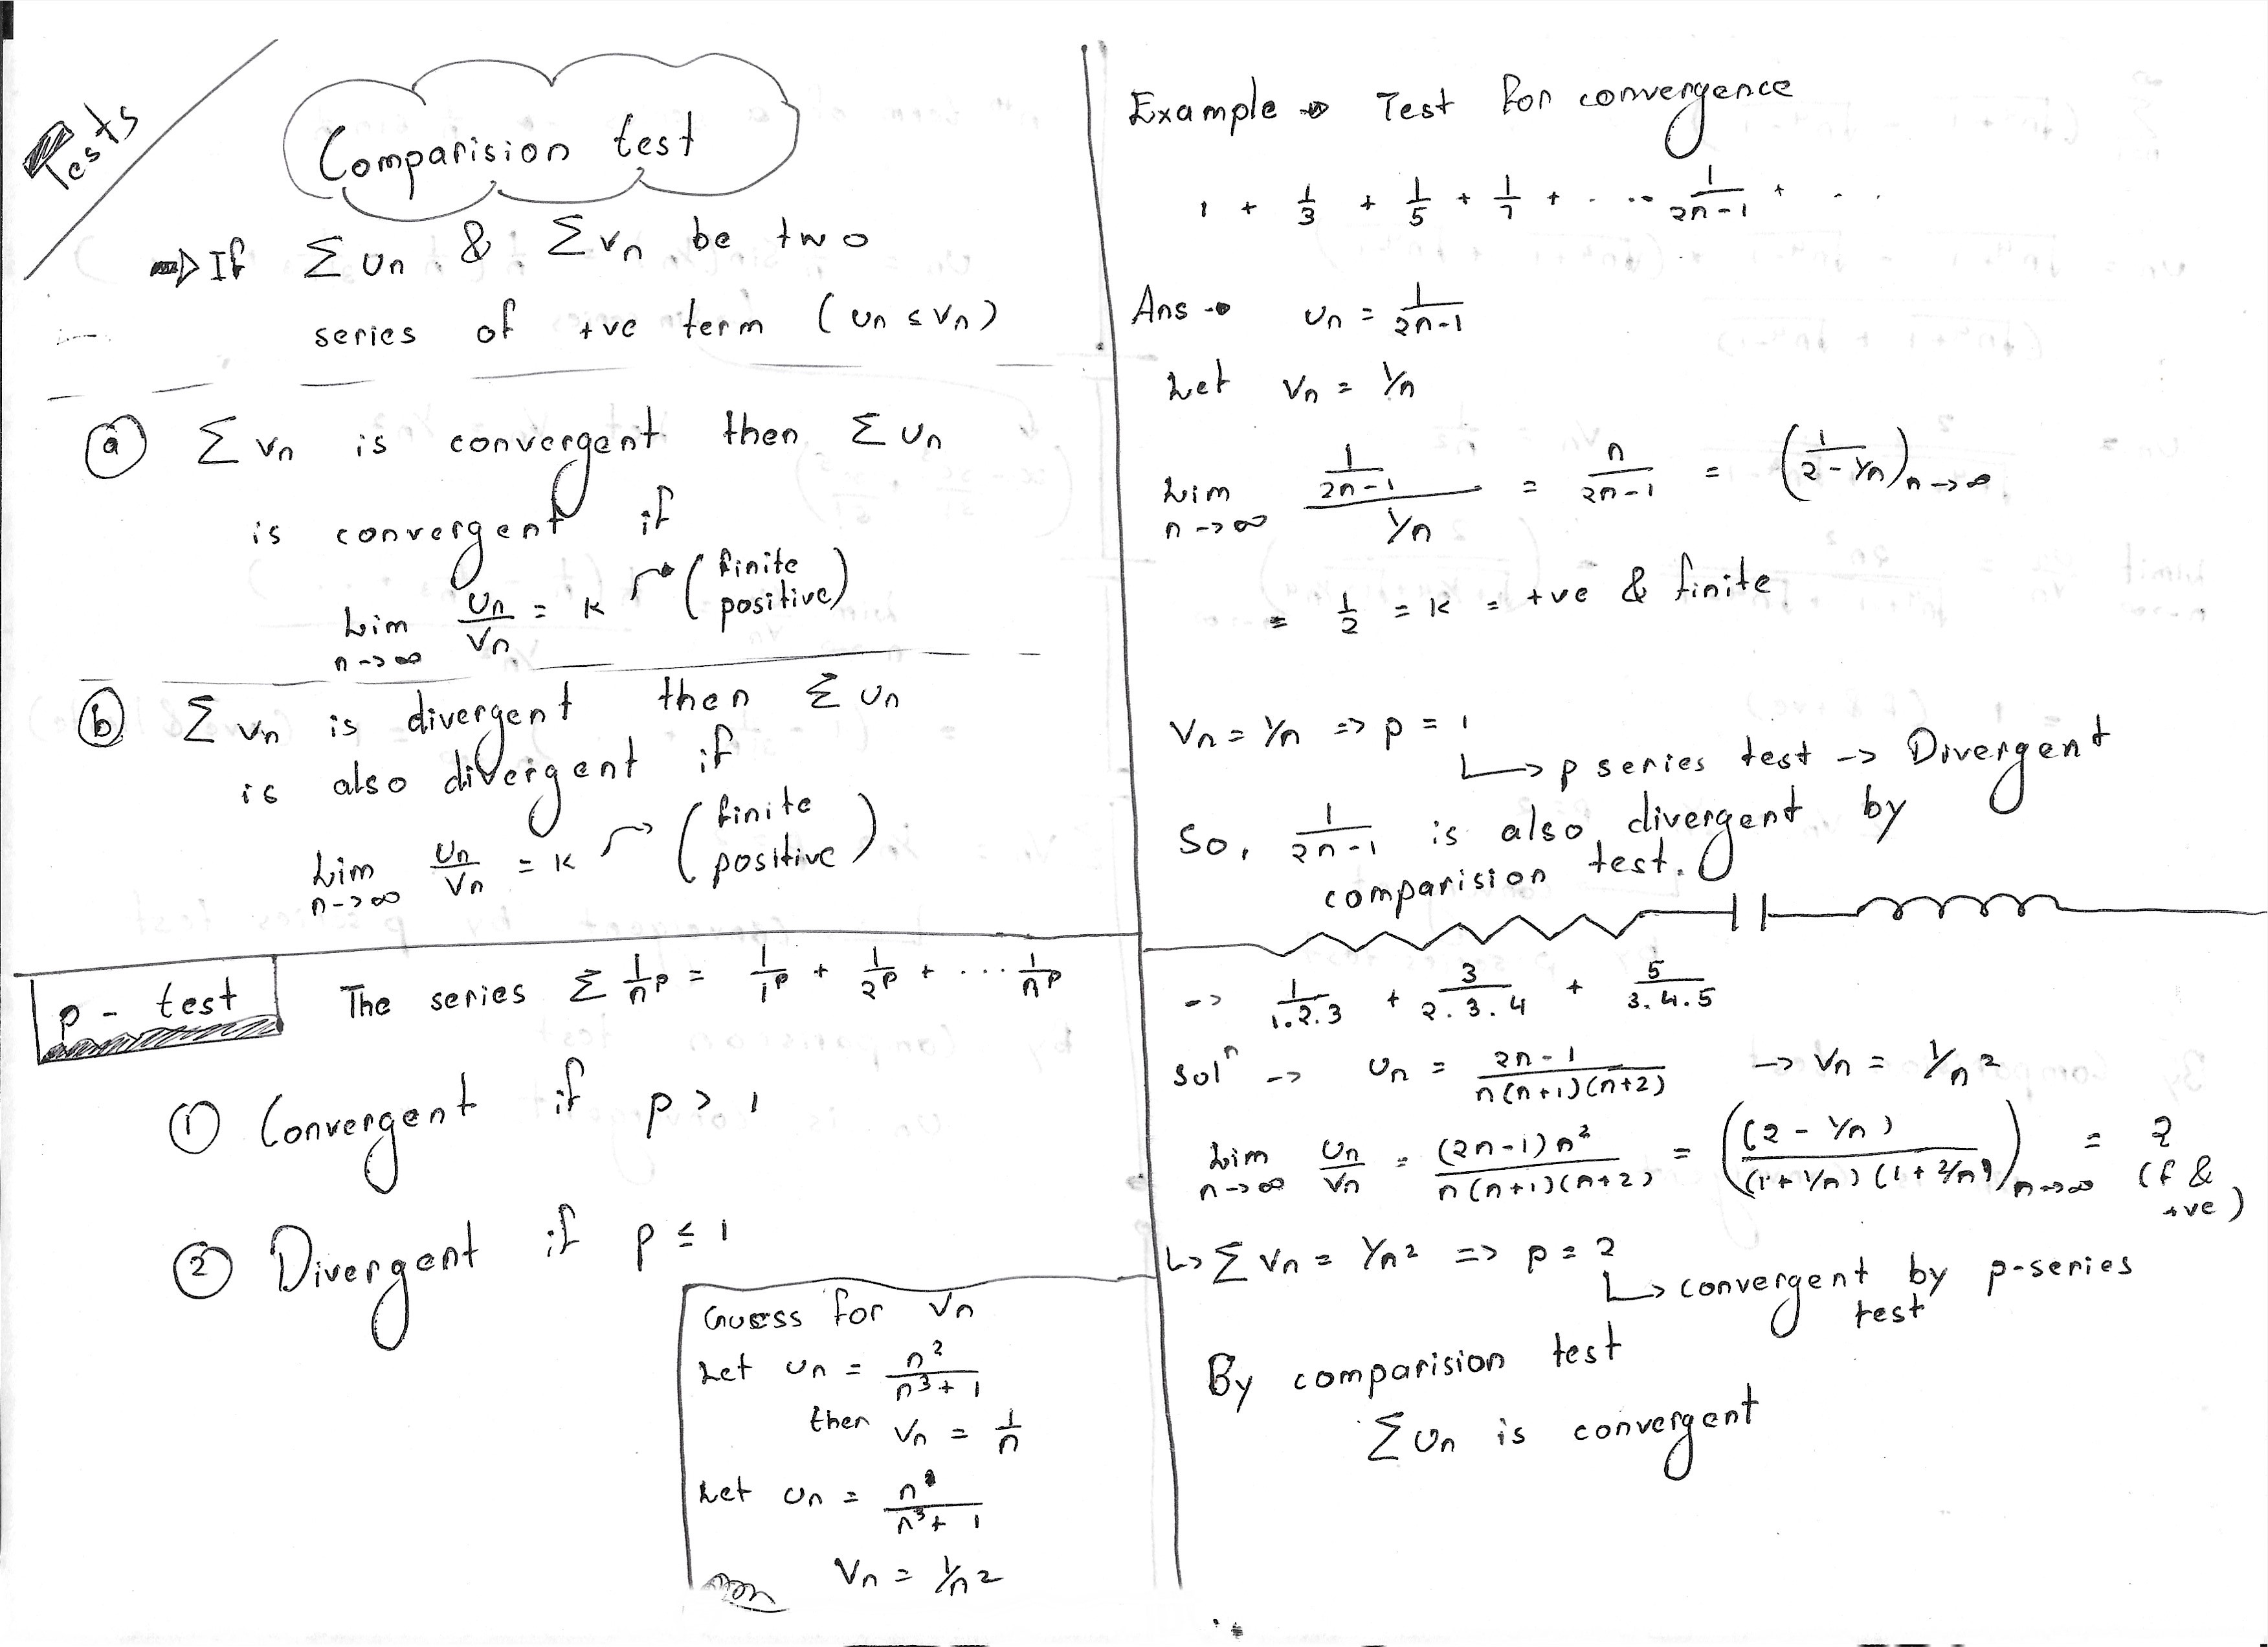 Tests
Comparision test
⇒ If Σ un & Σ vn be two
series of +ve term (un ≤ vn)
(a) Σ vn is convergent then Σ un
is convergent if
Lim n→∞ un/vn = k → (finite positive)
(b) Σ vn is divergent then Σ un
is also divergent if
Lim n→∞ un/vn = k → (finite positive)
p - test The series Σ 1/n^p = 1/1^p + 1/2^p + ... 1/n^p
① Convergent if p > 1
② Divergent if p ≤ 1
Guess for vn
Let un = n²/(n³+1)
then vn = 1/n
Let un = n/(n³+1)
vn = 1/n²
Example → Test for convergence
1 + 1/3 + 1/5 + 1/7 + .... 1/(2n-1) + . .
Ans → un = 1/(2n-1)
Let vn = 1/n
Lim n→∞ (1/(2n-1))/(1/n) = n/(2n-1) = (1/(2-1/n)) n→∞
= 1/2 = k = +ve & finite
vn = 1/n => p = 1
↳ p series test -> Divergent
So, 1/(2n-1) is also divergent by
comparision test.
-> 1/(1.2.3) + 3/(2.3.4) + 5/(3.4.5)
solⁿ -> un = (2n-1)/(n(n+1)(n+2)) -> vn = 1/n²
Lim n→∞ un/vn = (2n-1)n²/(n(n+1)(n+2)) = ((2-1/n)/((1+1/n)(1+2/n))) n→∞ = 2
(f & +ve)
↳ Σ vn = 1/n² => p = 2
↳ convergent by p-series
test
By comparision test
Σ un is convergent